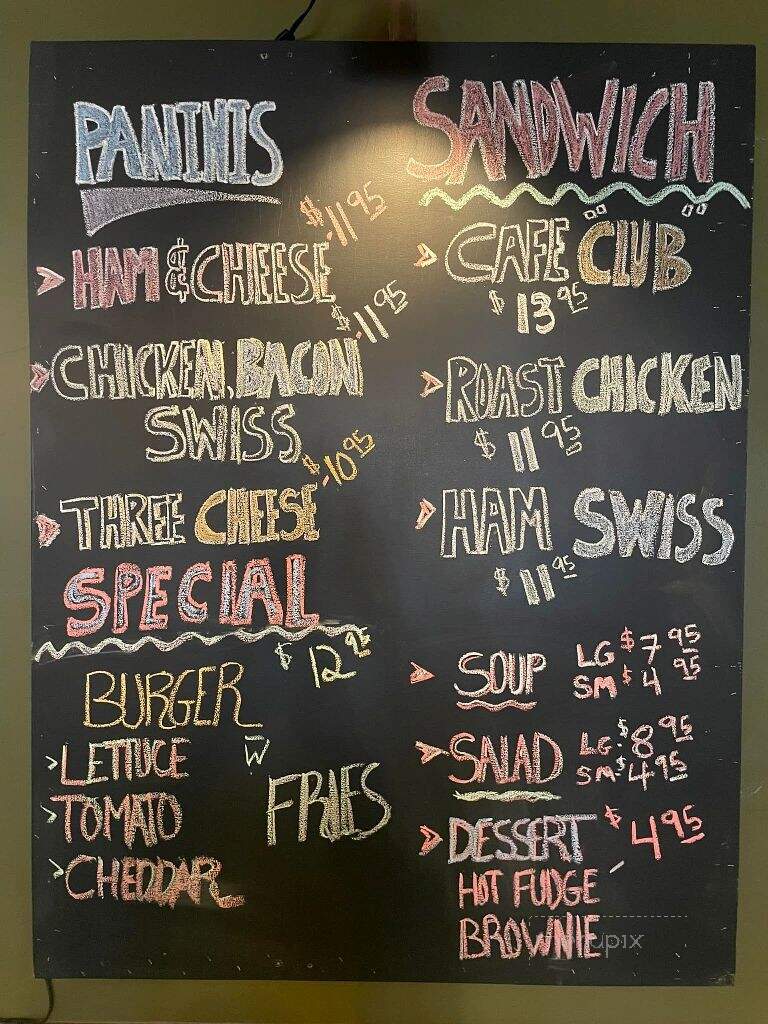 PANINIS
$11.95
HAM & CHEESE
$11.95
CHICKEN, BACON
SWISS
$10.95
THREE CHEESE
SPECIAL
$12.95
BURGER
LETTUCE
W
TOMATO
FRIES
CHEDDAR
SANDWICH
CAFE CLUB
$13.95
ROAST CHICKEN
$11.95
HAM SWISS
$11.95
SOUP LG $7.95
SM $4.95
SALAD LG $8.95
SM $4.95
DESSERT $4.95
HOT FUDGE
BROWNIE